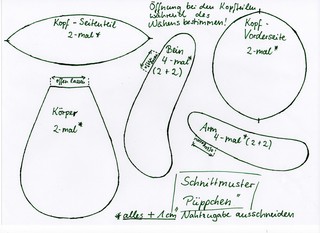 Öffnung bei den Kopfteilen
während des
Nähens bestimmen!
Kopf - Seitenteil
2-mal *
Bein
4-mal *
(2+2)
Kopf -
Vorderseite
2-mal *
offen lassen
Körper
2-mal *
Arm
4-mal * (2+2)
Schnittmuster
"Püppchen"
* alles + 1 cm Nahtzugabe ausschneiden